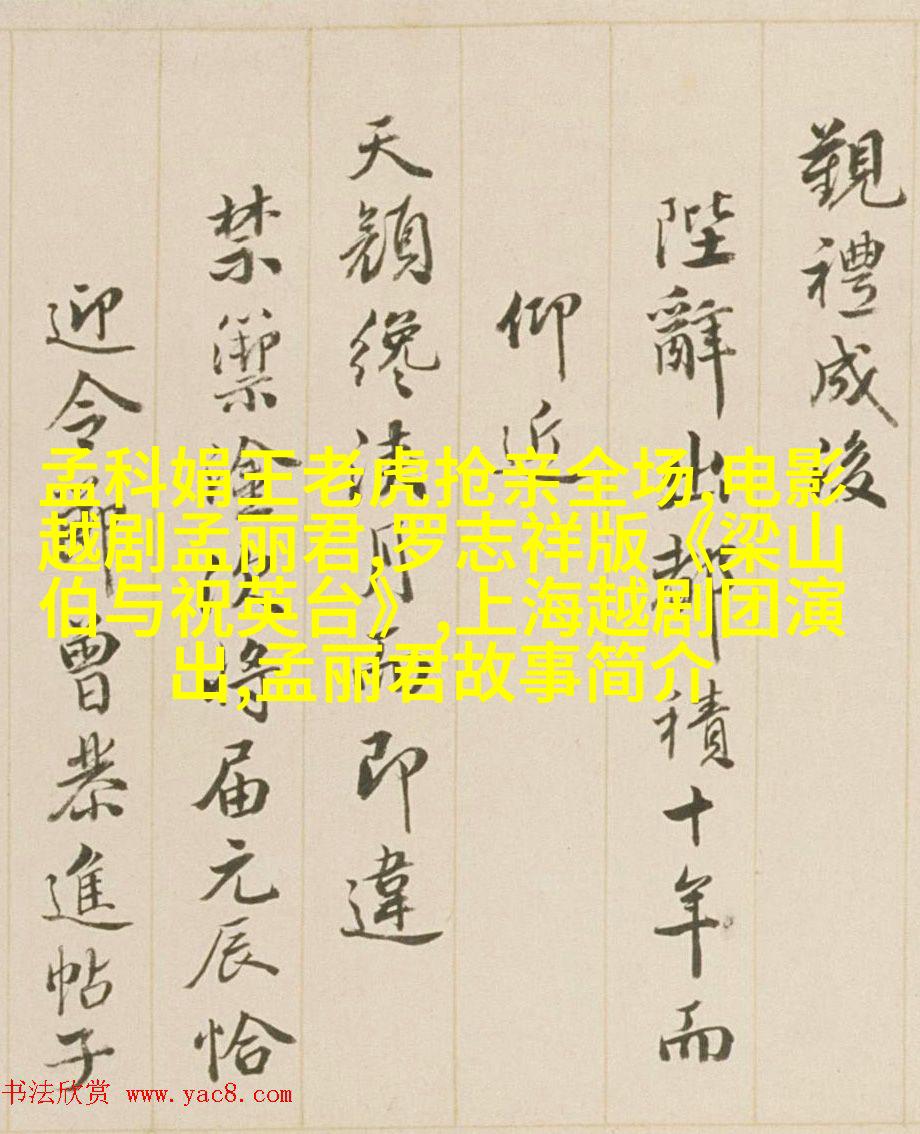 覲禮成後
陛辭出都積十年而
仰近
天顔纔浹月而即違
禁籞塗次將届元辰恰
迎令節曾恭進帖子
孟科娟王老虎抢亲全场,电影
越剧孟丽君,罗志祥版《梁山
伯与祝英台》,上海越剧团演
出,孟丽君故事简介
书法欣赏 www.yac8.com